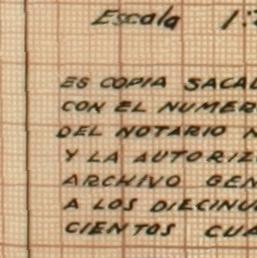 Escala 1:
ES COPIA SACA
CON EL NUMER
DEL NOTARIO
Y LA AUTORIZ
ARCHIVO GEN
A LOS DIECINU
CIENTOS CUA